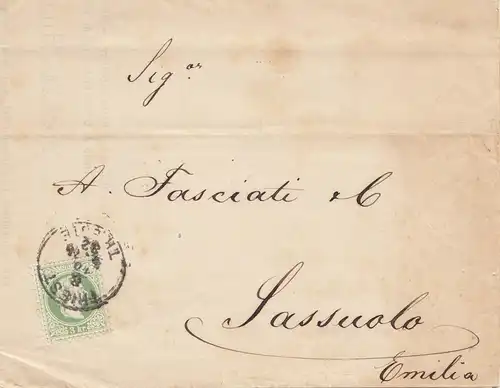 Sig.or
A. Fasciati & C
Sassuolo
Emilia
TRIEST
3 kr.